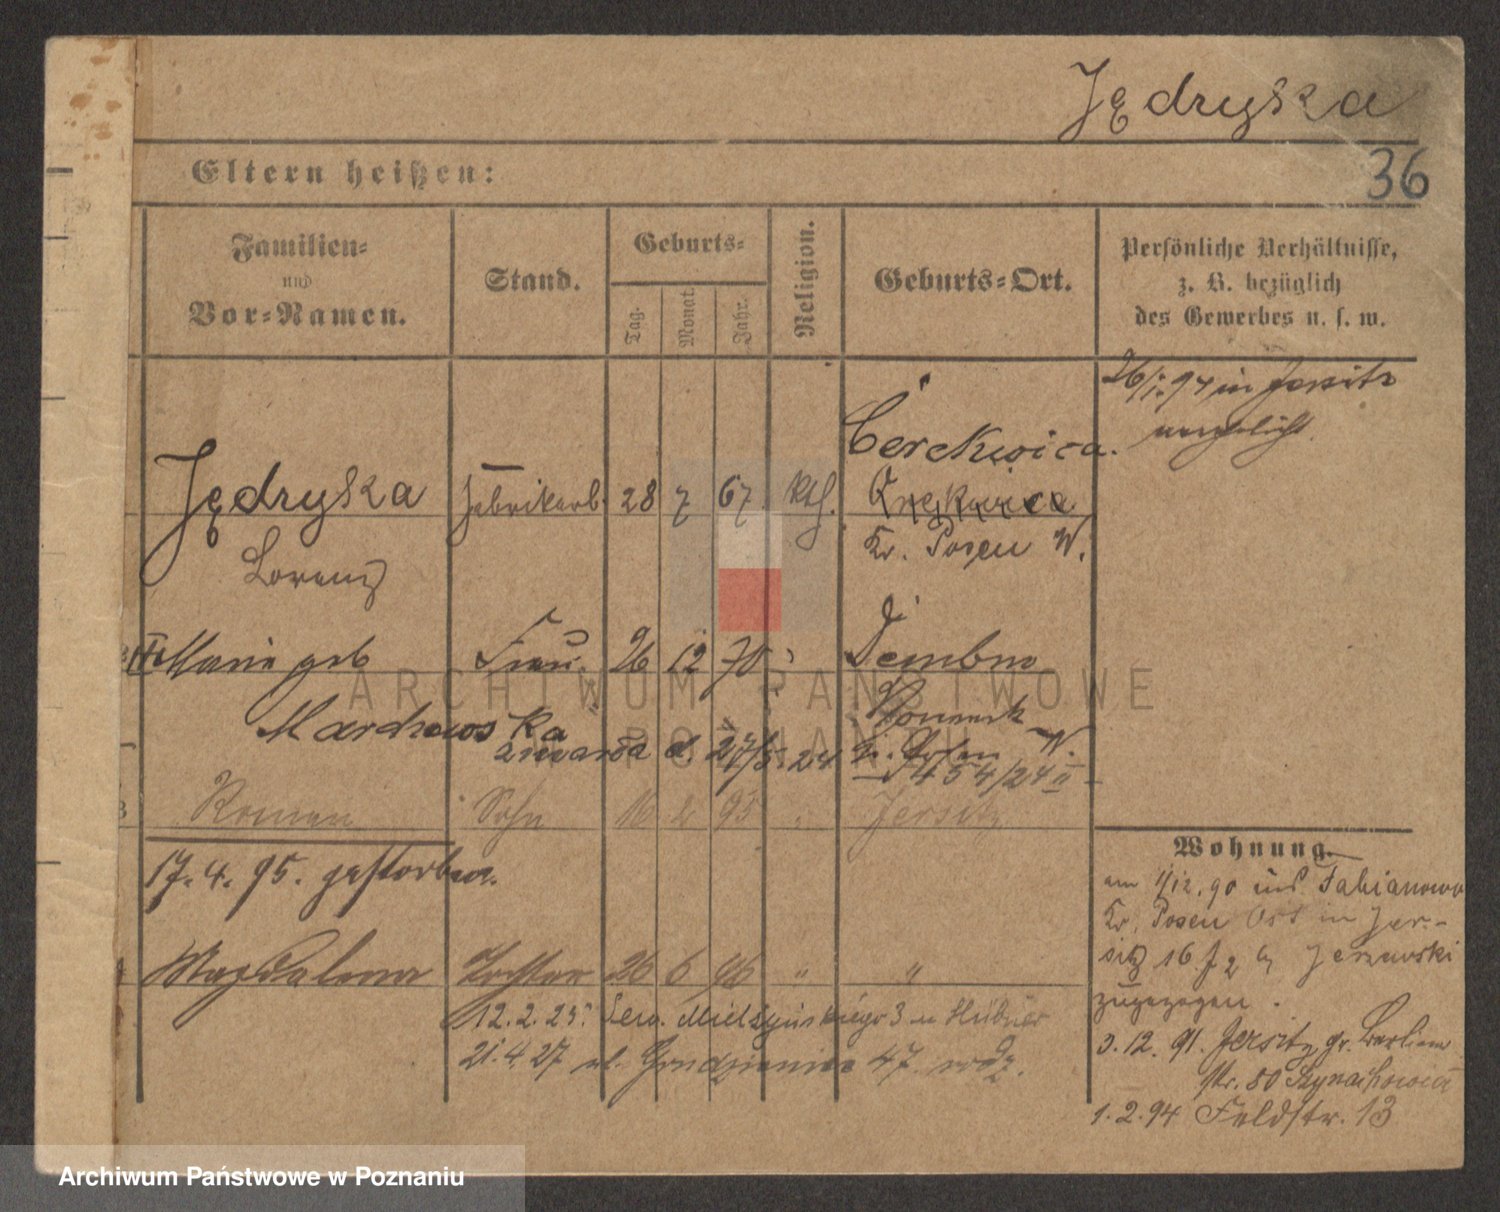 Jędryska
36
Eltern heißen:
Familien-
und
Vor-Namen.
Stand.
Geburts-
Tag.
Monat.
Jahr.
Religion.
Geburts-Ort.
Persönliche Verhältnisse,
z. B. bezüglich
des Gewerbes u. s. w.
26/1. 94 in Jersitz
verehelicht.
Cerekwica.
Jędryska Fabrikarb. 28 7 67 kth.
Lorenz
Kr. Posen W.
Marie geb Frau 26 12 70 Dembno
Marchewska
zmarła d. 27/5. 24
454/24 II
Roman Sohn 16 2 95 Jersitz
17. 4. 95. gestorben.
Magdalena Tochter 26 6 96 " "
12. 2. 25. Sew. Mielżyńskiego 3 u Hübner
21. 4. 27 ul. 47. rodz.
Wohnung.
am 1/12. 90 aus Fabianowo
Kr. Posen Ost in Jer-
sitz 16 J 2 b/ Jerzewski
zugezogen.
3. 12. 91. Jersitz gr. Berliner
str. 80
1. 2. 94 Feldstr. 13
ARCHIWUM PAŃSTWOWE
W POZNANIU
Archiwum Państwowe w Poznaniu